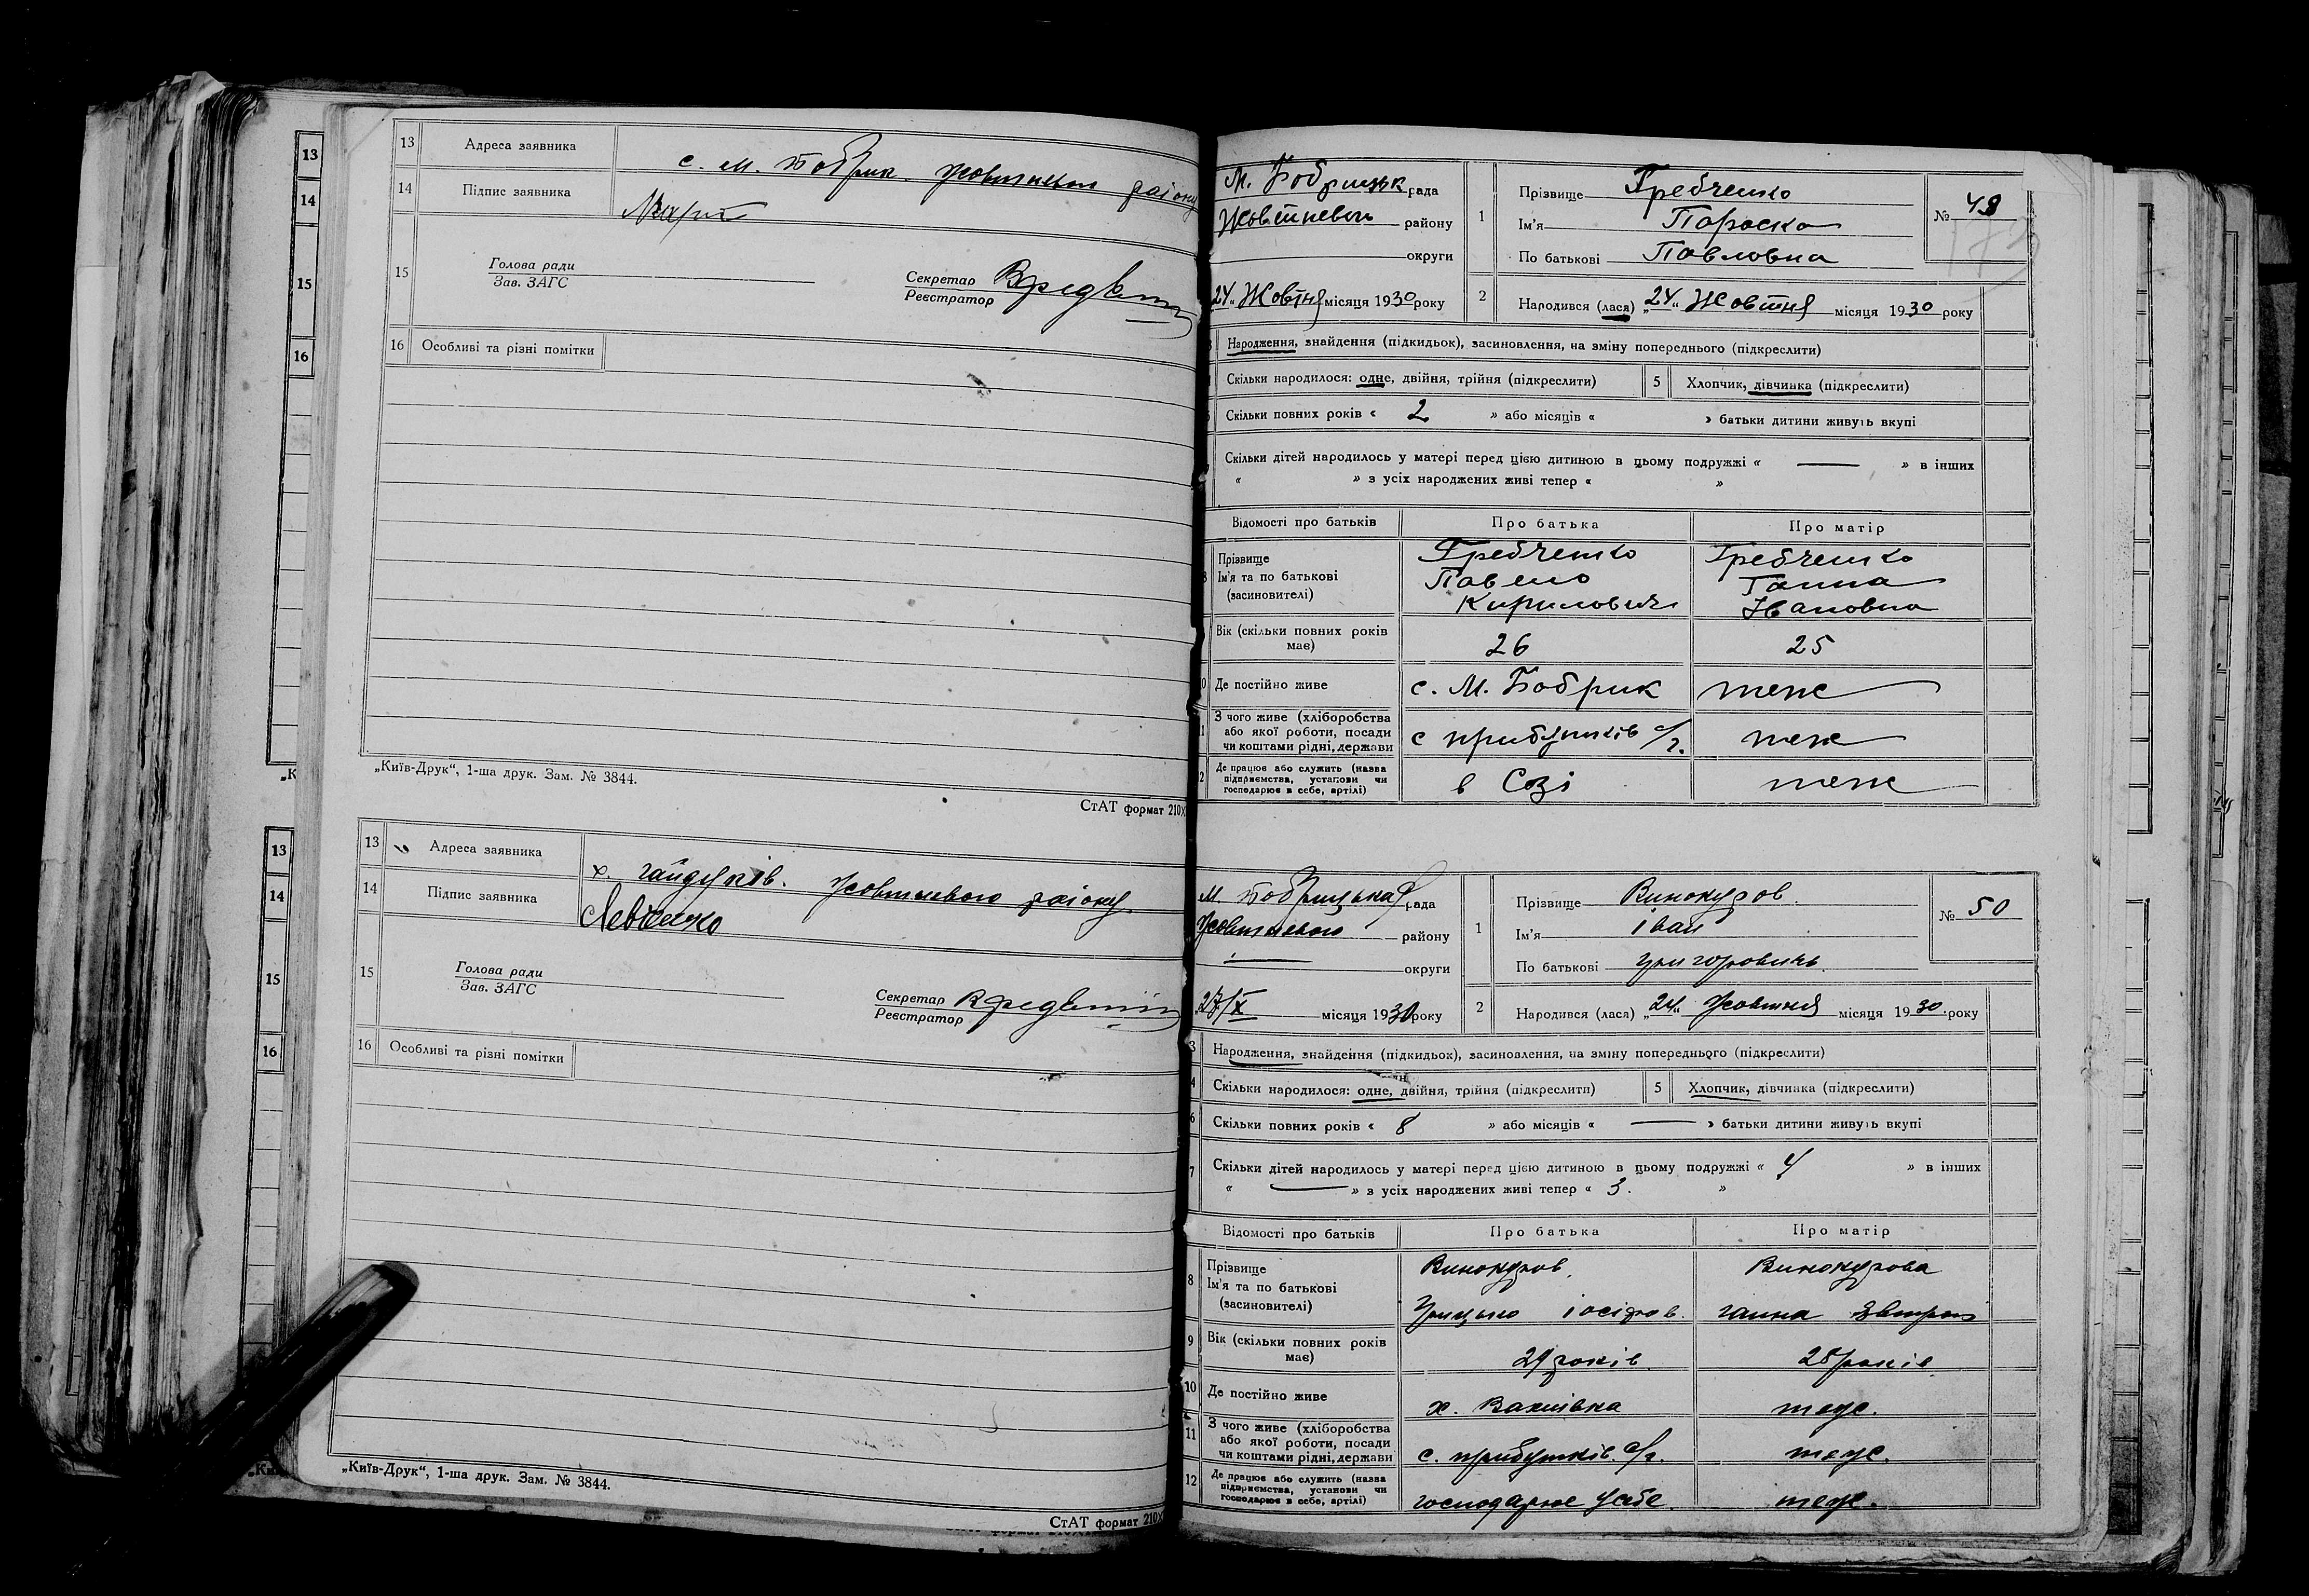 13
14
15
16
13 Адреса заявника с. М. Бобрик Жовтневого району
14 Підпис заявника
15 Голова ради
Зав. ЗАГС
Секретар
Реєстратор
16 Особливі та різні помітки
„Київ-Друк“, 1-ша друк. Зам. № 3844.
СтАТ формат 210х
13
14
15
16
13 Адреса заявника х. Гайдуків. Жовтневого району
14 Підпис заявника Левченко
15 Голова ради
Зав. ЗАГС
Секретар
Реєстратор
16 Особливі та різні помітки
„Київ-Друк“, 1-ша друк. Зам. № 3844.
СтАТ формат 210х
М. Бобрицьк рада
Жовтневого району
округи
„24“ Жовтня місяця 1930 року
1 Прізвище Гребченко
Ім'я Параска
По батькові Павловна
№ 49
2 Народився (лася) „24“ Жовтня місяця 1930 року
Народження, знайдення (підкидьок), засиновлення, на зміну попереднього (підкреслити)
Скільки народилося: одне, двійня, трійня (підкреслити) 5 Хлопчик, дівчинка (підкреслити)
Скільки повних років « 2 » або місяців « » батьки дитини живуть вкупі
Скільки дітей народилось у матері перед цією дитиною в цьому подружжі « — » в інших
« » з усіх народжених живі тепер « »
Відомості про батьків Про батька Про матір
Прізвище Гребченко Гребченко
Ім'я та по батькові Павело Ганна
(засиновителі) Кирилович Івановна
Вік (скільки повних років
має) 26 25
Де постійно живе с. М. Бобрик теж
З чого живе (хліборобства
або якої роботи, посади с прибутків с/г. теж
чи коштами рідні, держави
Де працює або служить (назва
підприємства, установи чи в Созі теж
господарює в себе, артілі)
М. Бобрицька рада
Жовтневого району
— округи
27/X місяця 1930 року
1 Прізвище Винокуров.
Ім'я Іван
По батькові Григорович.
№ 50
2 Народився (лася) „24“ Жовтня місяця 1930 року
3 Народження, знайдення (підкидьок), засиновлення, на зміну попереднього (підкреслити)
4 Скільки народилося: одне, двійня, трійня (підкреслити) 5 Хлопчик, дівчинка (підкреслити)
6 Скільки повних років « 8 » або місяців « — » батьки дитини живуть вкупі
7 Скільки дітей народилось у матері перед цією дитиною в цьому подружжі « 4 » в інших
« — » з усіх народжених живі тепер « 3. »
Відомості про батьків Про батька Про матір
8 Прізвище Винокуров. Винокурова
Ім'я та по батькові
(засиновителі) Грицько Іосіфов. Ганна
9 Вік (скільки повних років
має) 29 років. 28 років
10 Де постійно живе х. теж.
11 З чого живе (хліборобства
або якої роботи, посади
чи коштами рідні, держави с. прибутків. с/г. теж.
12 Де працює або служить (назва
підприємства, установи чи
господарює в себе, артілі) господарює у себе теж.